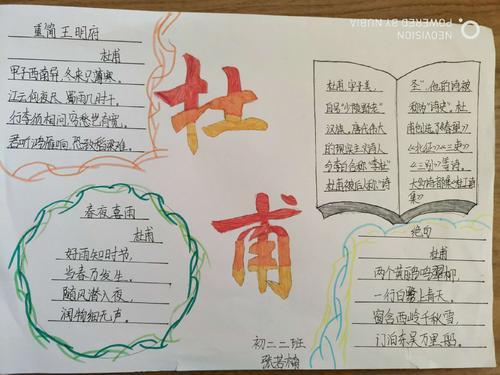 重简王明府
杜甫
甲子西南异,冬来只薄寒。
江云何夜尽,蜀雨几时干。
行李须相问,穷愁岂有宽。
君听鸿雁响,恐致稻粱难。
春夜喜雨
杜甫
好雨知时节,
当春乃发生。
随风潜入夜,
润物细无声。
杜甫
杜甫,字子美,
自号“少陵野老”
汉族,唐代伟大
的现实主义诗人
与李白合称“李杜”
杜甫被后人称“诗
圣”,他的诗被
称为“诗史”。杜
甫创造了《春望》
《北征》《三吏》
《三别》等诗。
绝句
杜甫
两个黄鹂鸣翠柳,
一行白鹭上青天。
窗含西岭千秋雪,
门泊东吴万里船。
初二二班
NEOVISION
POWERED BY NUBIA